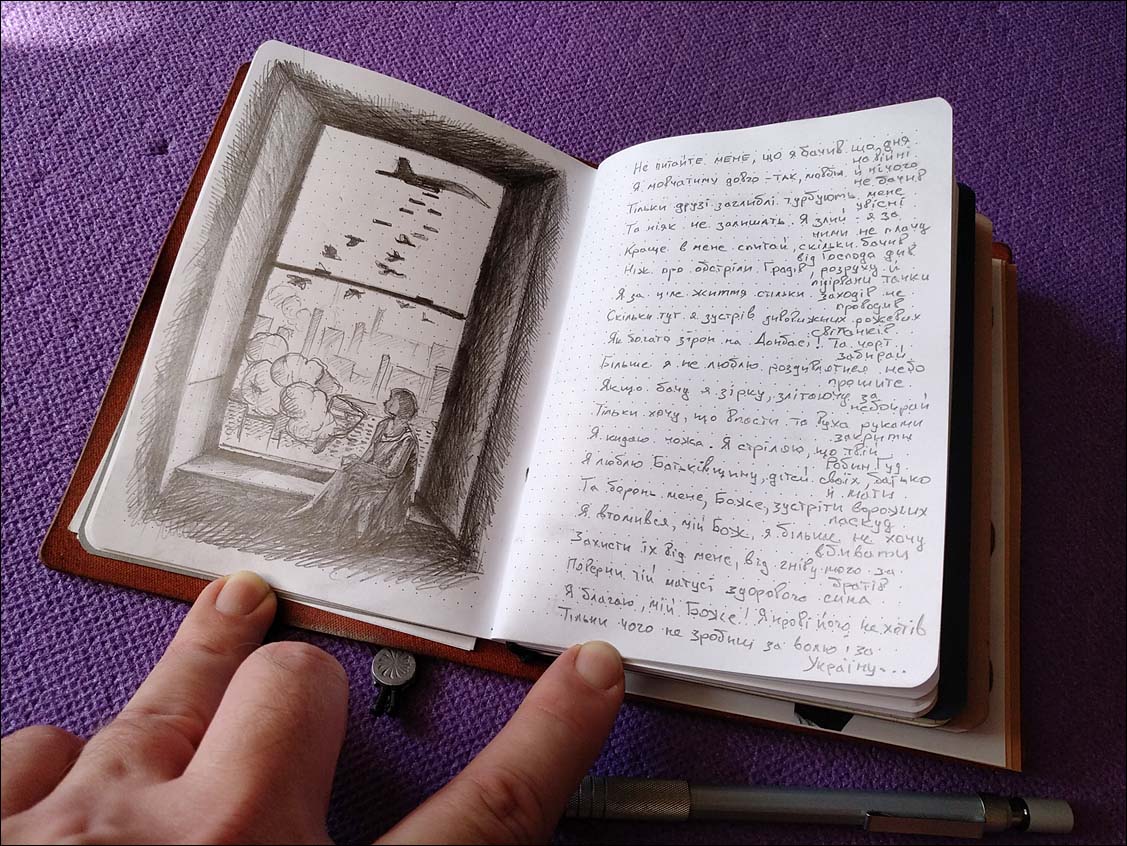 Не питайте мене, що я бачив що дня
на війні
Я мовчатиму довго – так, мовби й нічого
не бачив
Тільки друзі загиблі турбують мене
уві сні
Та ніяк не залишать. Я злий і я за
ними не плачу
Краще в мене спитай, скільки бачив
від Господа див
Ніж про обстріли Градів, розруху й
підірвані танки
Я за ціле життя стільки заходів не
проводив
Скільки тут я зустрів дивовижних рожевих
світанків
Як багато зірок на Донбасі! Та чорт
забирай,
Більше я не люблю роздивлятися небо
прошите
Якщо бачу я зірку, злітаючу за
небокрай
Тільки хочу, що впасти та вуха руками
закрити
Я кидаю ножа. Я стріляю, що твій
Робин Гуд
Я люблю Батьківщину, дітей своїх, батько
й мати
Та борони мене, Боже, зустріти ворожих
паскуд
Я втомився, мій Бож, я більше не хочу
вбивати
Захисти їх від мене, від гніву мого за
братів
Поверни тій матусі здорового сина
Я благаю, мій Боже! Я крові його не хотів
Тільки чого не зробиш за волю і за
Україну...